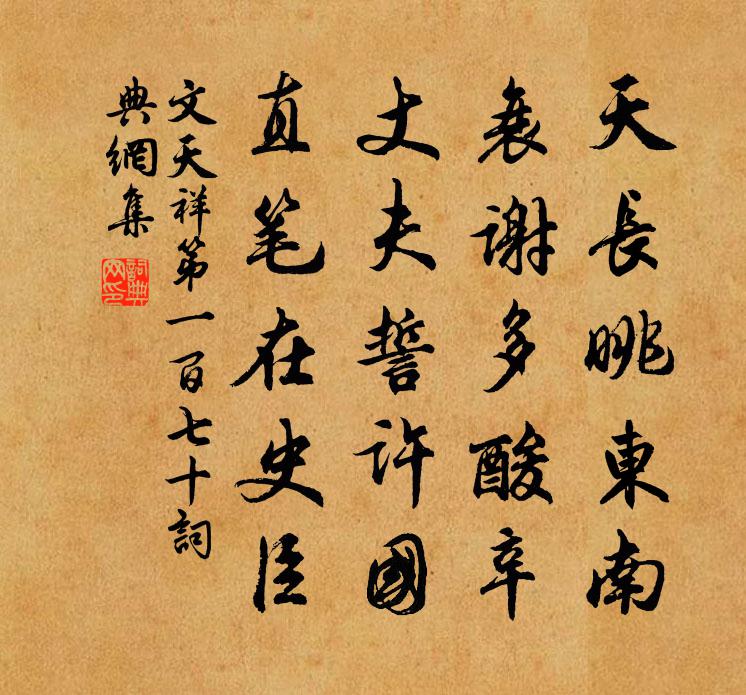 天長眺東南
衰謝多酸辛
丈夫誓許國
直笔在史臣
文天祥第一百七十詞
典網集
詞典
网印